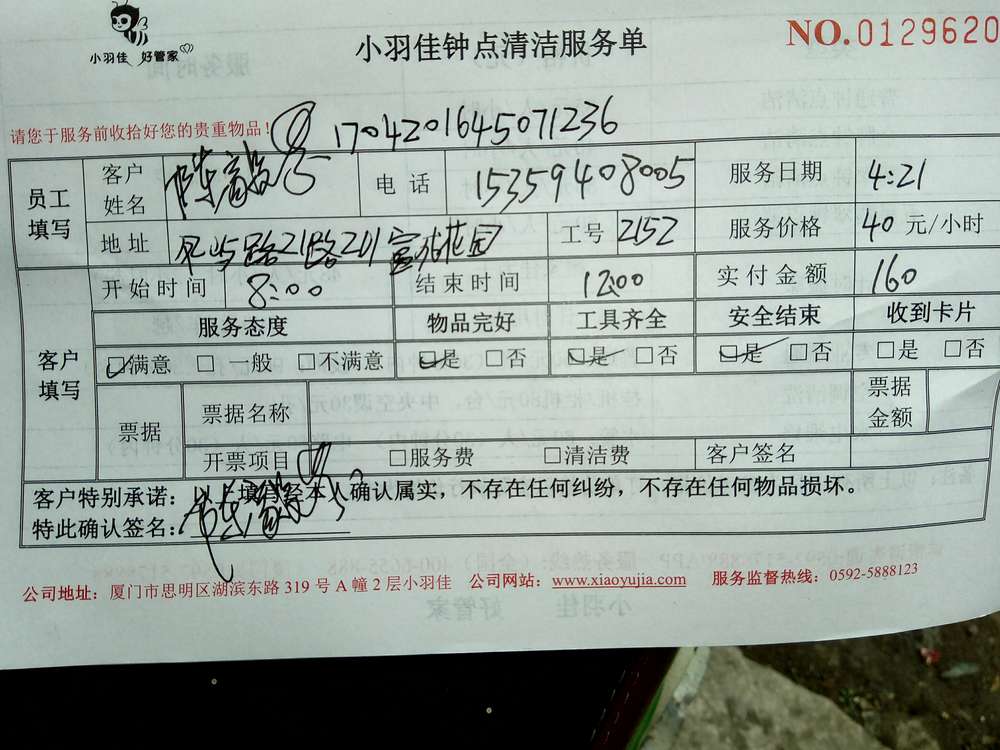 小羽佳 好管家
小羽佳钟点清洁服务单
NO.0129620
请您于服务前收拾好您的贵重物品！
1704201645071236
员工填写 客户姓名 电话 15359408005 服务日期 4:21
地址 花园 工号 2152 服务价格 40 元/小时
开始时间 8:00 结束时间 12:00 实付金额 160
客户填写 服务态度 物品完好 工具齐全 安全结束 收到卡片
☑满意 □一般 □不满意 ☑是 □否 ☑是 □否 ☑是 □否 □是 □否
票据 票据名称 票据金额
开票项目 □服务费 □清洁费 客户签名
客户特别承诺：以上填写经本人确认属实，不存在任何纠纷，不存在任何物品损坏。
特此确认签名：
公司地址：厦门市思明区湖滨东路 319 号 A 幢 2 层小羽佳 公司网站：www.xiaoyujia.com 服务监督热线：0592-5888123